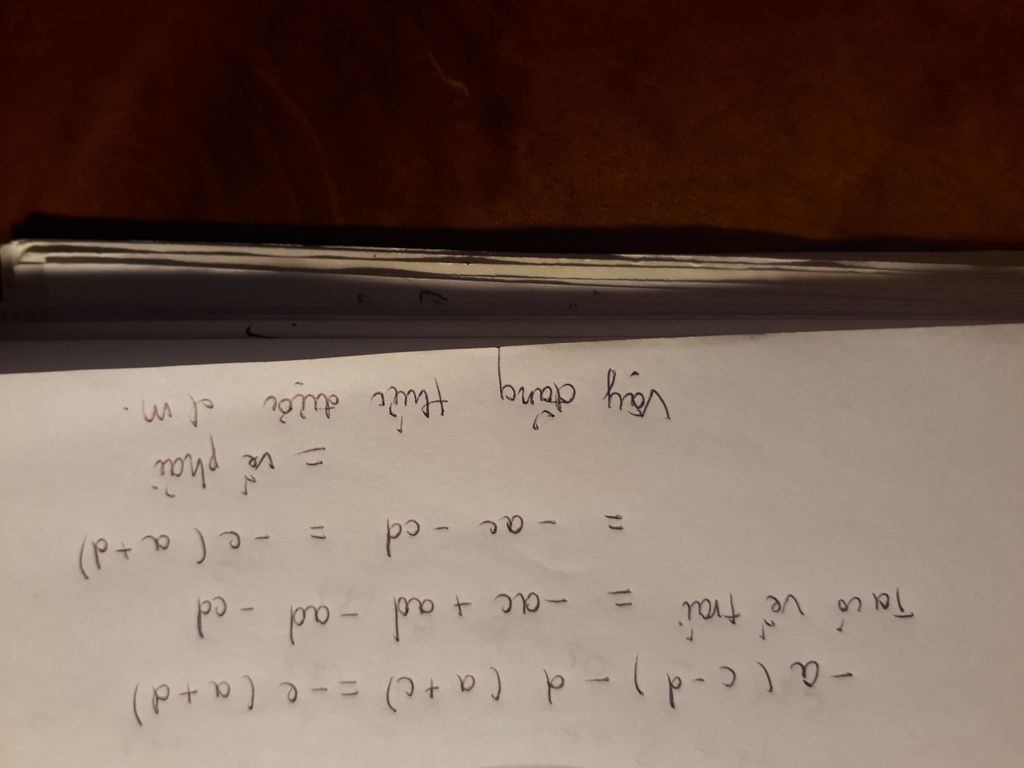 -a(c-d)-d(a+c)=-c(a+d)
Ta có vế trái = -ac + ad - ad - cd
= -ac - cd = -c(a+d)
= vế phải
Vậy đẳng thức được cm.